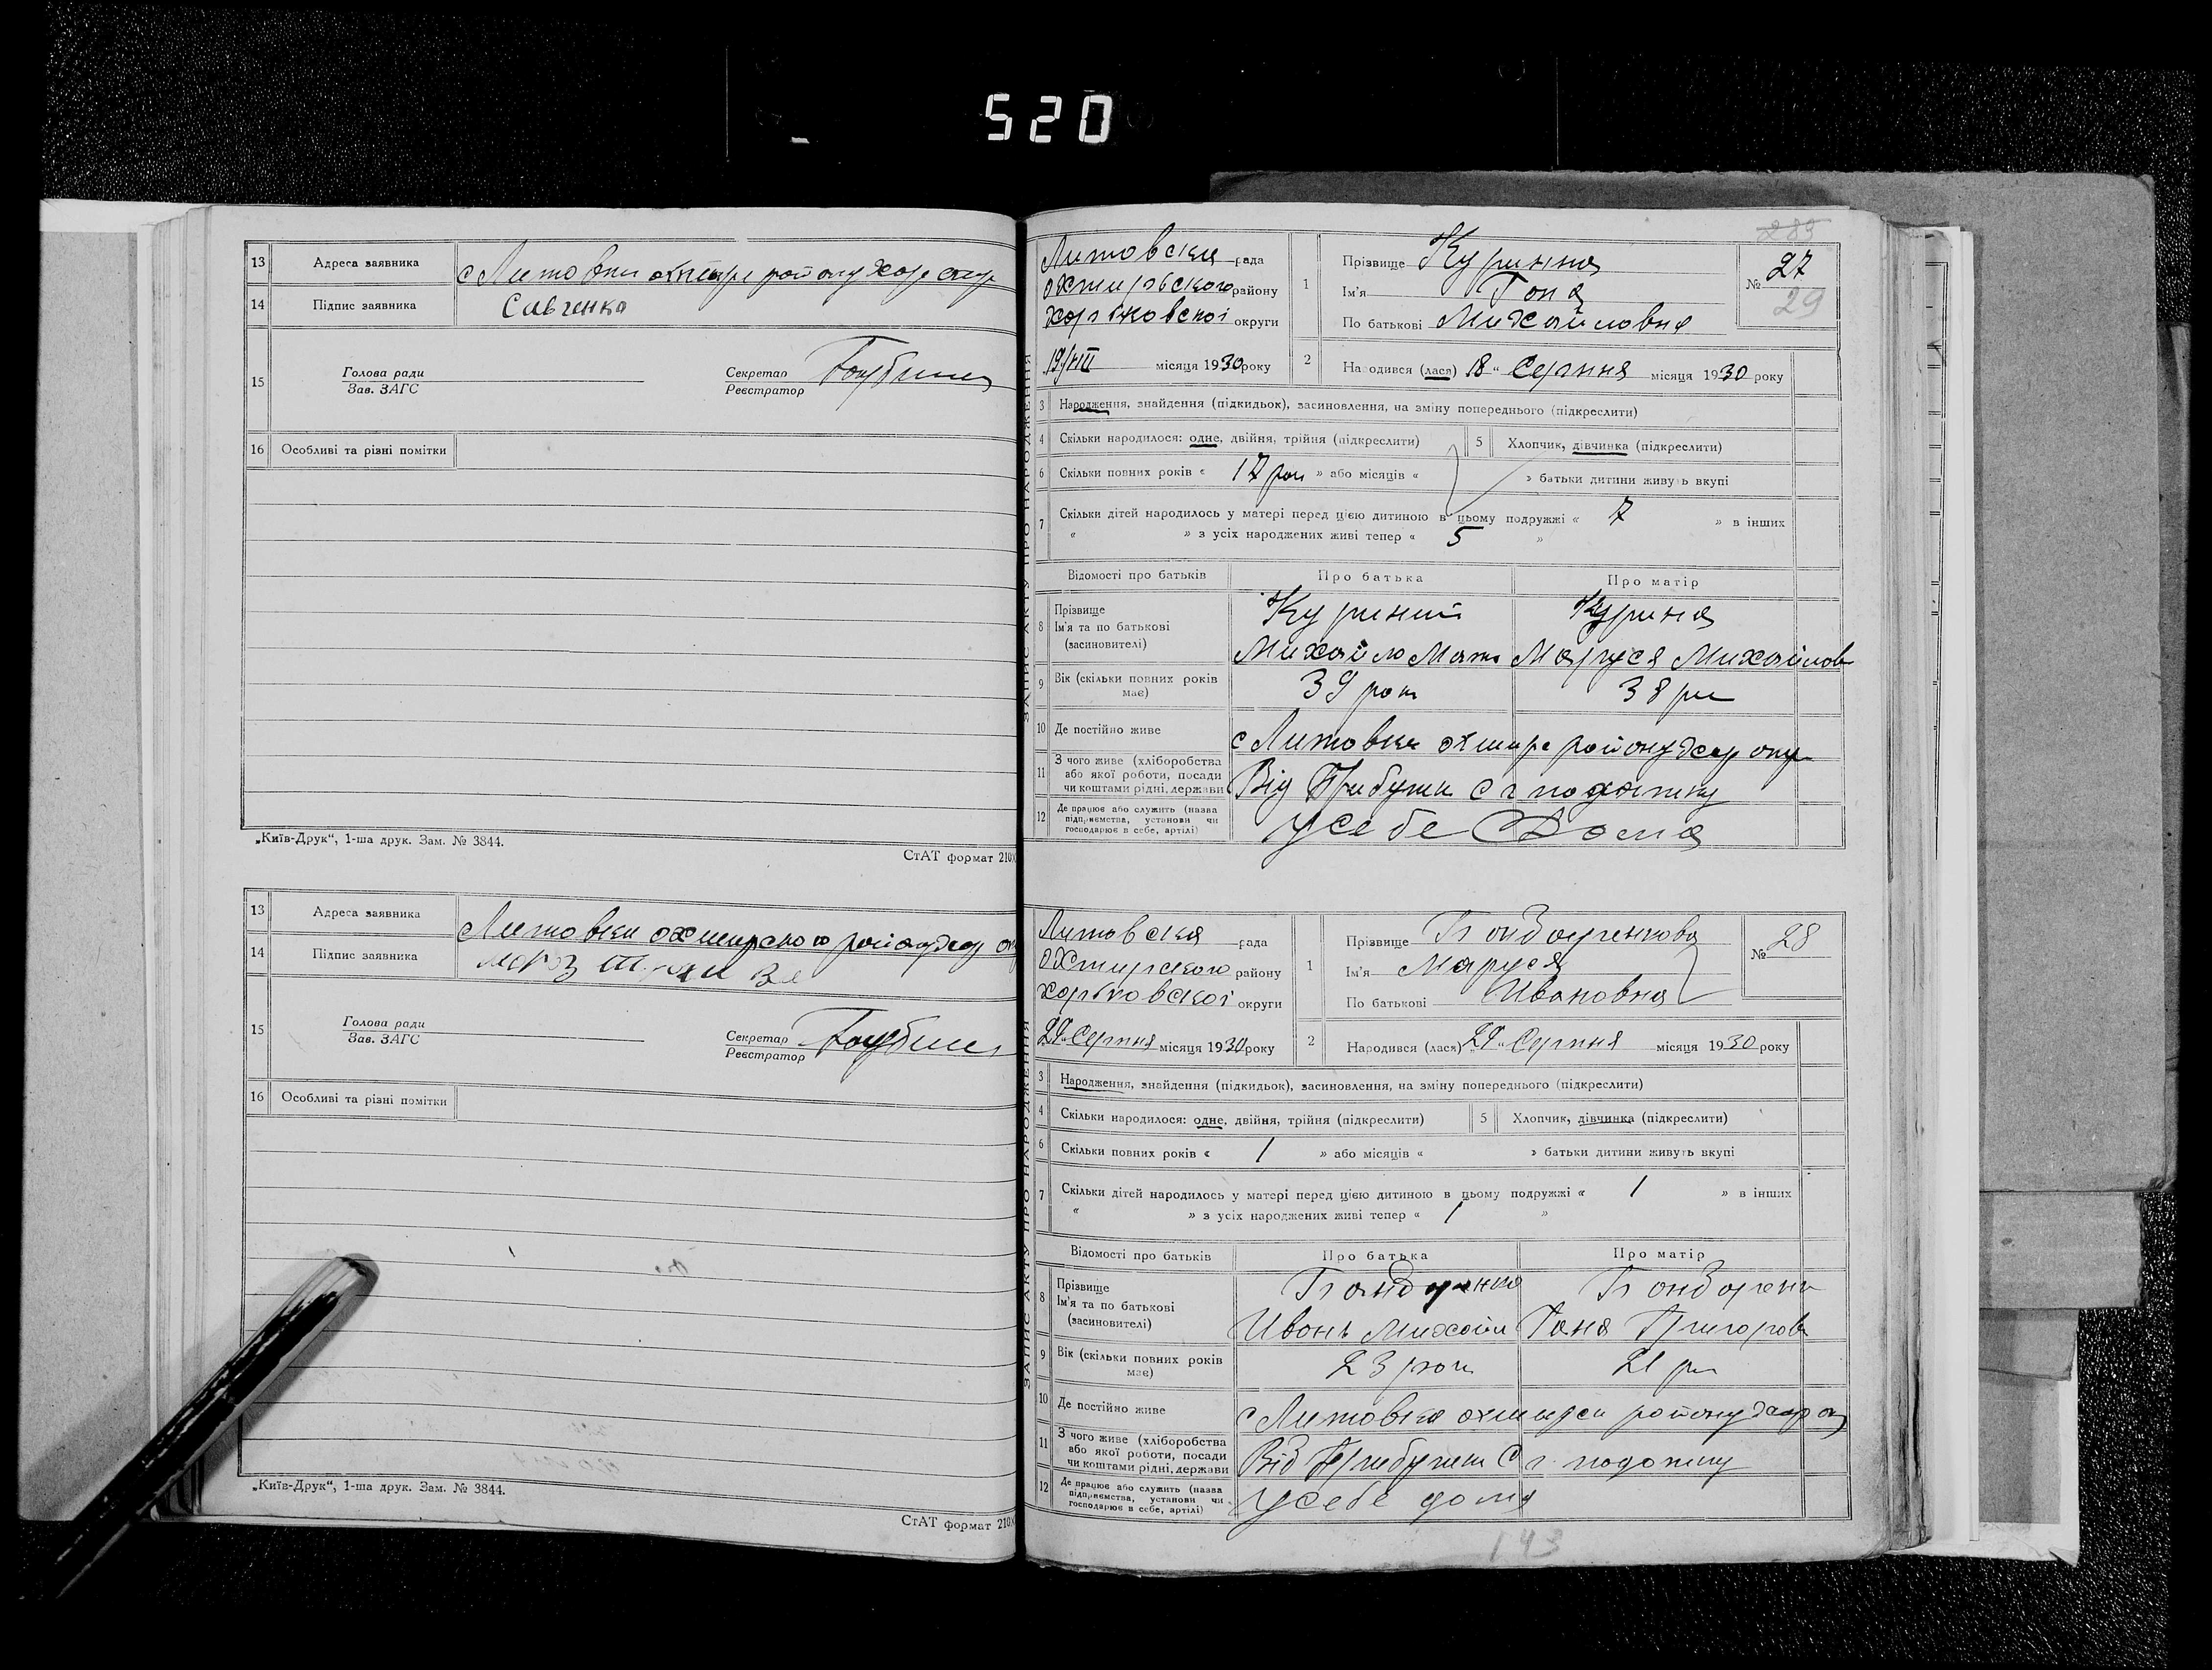 520
13 Адреса заявника с Литовки охтирс району Харк окр
14 Підпис заявника Савченко
15 Голова ради
Зав. ЗАГС
Секретар
Реєстратор
16 Особливі та різні помітки
„Київ-Друк“, 1-ша друк. Зам. № 3844.
СтАТ формат 210
13 Адреса заявника Литовки охтирского району Хар
14 Підпис заявника
15 Голова ради
Зав. ЗАГС
Секретар
Реєстратор
16 Особливі та різні помітки
„Київ-Друк“, 1-ша друк. Зам. № 3844.
СтАТ формат 210
283
ЗАПИС АКТУ ПРО НАРОДЖЕННЯ
Литовска рада
охтирьского району
харьковскоі округи
19/VIII місяця 1930 року
1 Прізвище Куринна
Ім'я Гоня
По батькові Михайловна
№ 27
29
2 Народився (лася) 18 „ Серпня місяця 1930 року
3 Народження, знайдення (підкидьок), засиновлення, на зміну попереднього (підкреслити)
4 Скільки народилося: одне, двійня, трійня (підкреслити) 5 Хлопчик, дівчинка (підкреслити)
6 Скільки повних років « 17 рок » або місяців « » батьки дитини живуть вкупі
7 Скільки дітей народилось у матері перед цією дитиною в цьому подружжі « 7 » в інших
« » з усіх народжених живі тепер « 5 »
Відомості про батьків Про батька Про матір
8 Прізвище
Ім'я та по батькові
(засиновителі)
Куриний Курина
Михайло Маруся Михайлов
9 Вік (скільки повних років має) 39 рок 38 рок
10 Де постійно живе с Литовка охтирс району Хар окр
11 З чого живе (хліборобства або якої роботи, посади чи коштами рідні, держави Від Прибутки С г податку
12 Де працює або служить (назва підприємства, установи чи господарює в себе, артілі) усебе Дома
ЗАПИС АКТУ ПРО НАРОДЖЕННЯ
Литовска рада
охтирского району
харьковскоі округи
29 Серпня місяця 1930 року
1 Прізвище Бондаренкова
Ім'я Маруся
По батькові Ивановна
№ 28
2 Народився (лася) „29„ Серпня місяця 1930 року
3 Народження, знайдення (підкидьок), засиновлення, на зміну попереднього (підкреслити)
4 Скільки народилося: одне, двійня, трійня (підкреслити) 5 Хлопчик, дівчинка (підкреслити)
6 Скільки повних років « 1 » або місяців « » батьки дитини живуть вкупі
7 Скільки дітей народилось у матері перед цією дитиною в цьому подружжі « 1 » в інших
« » з усіх народжених живі тепер « 1 »
Відомості про батьків Про батька Про матір
8 Прізвище
Ім'я та по батькові
(засиновителі)
Бондаренко Бондарен
Ивонь Михайл Ганя Григоров
9 Вік (скільки повних років має) 23 рок 21 рок
10 Де постійно живе с Литовка охтирск району Хар ок
11 З чого живе (хліборобства або якої роботи, посади чи коштами рідні, держави Від Прибутки С г податку
12 Де працює або служить (назва підприємства, установи чи господарює в себе, артілі) усебе дома
143